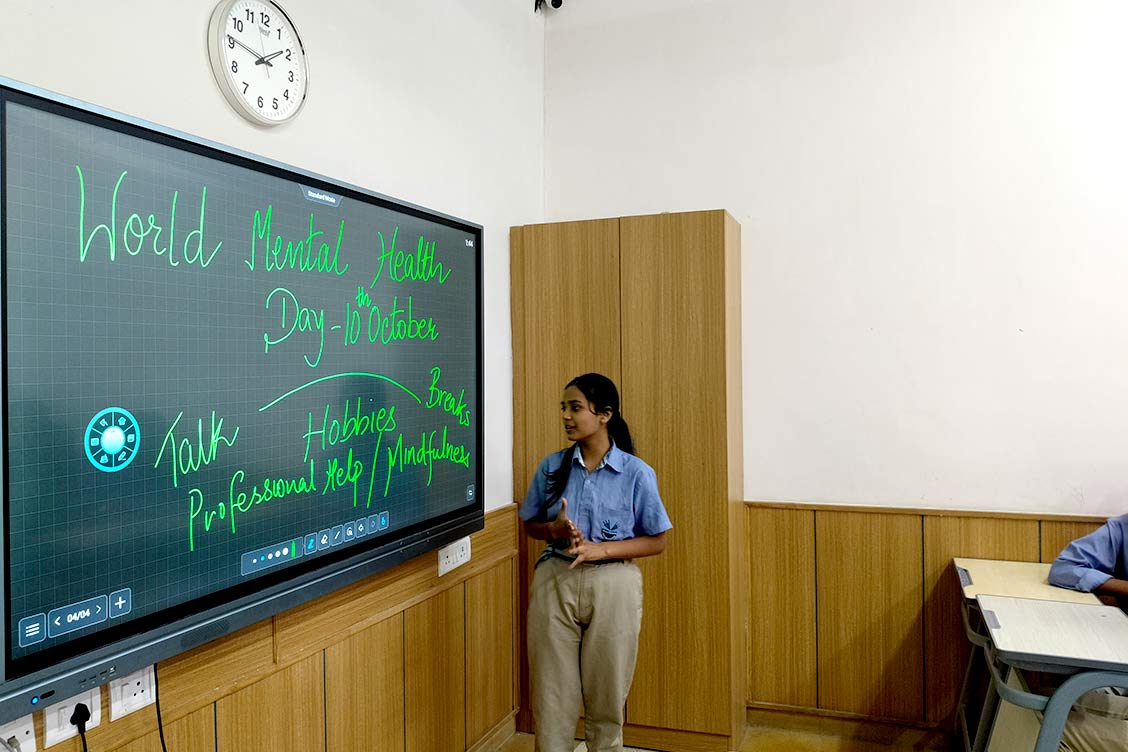 11 12 1
10 2
9 3
8 4
7 6 5
Standard Mode
World Mental Health
Day - 10th October
Talk Hobbies Breaks
Professional Help / Mindfulness
04/04